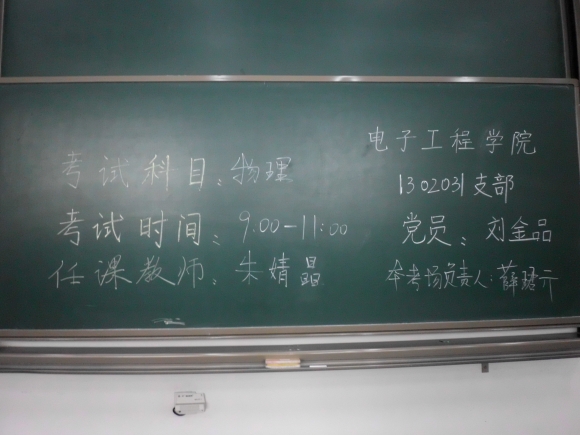 考试科目：物理
考试时间：9:00-11:00
任课教师：朱婧晶
电子工程学院
1302031支部
党员：刘金品
本考场负责人：薛珺亓